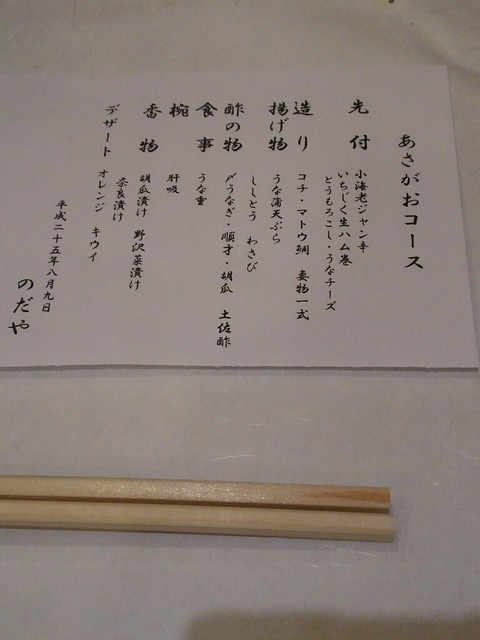 あさがおコース
先付 小海老ジャン辛
いちじく生ハム巻
とうもろこし・うなチーズ
造り コチ・マトウ鯛 妻物一式
揚げ物 うな蒲天ぷら
ししとう わさび
酢の物 〆うなぎ・順才・胡瓜 土佐酢
食事 うな重
椀 肝吸
香物 胡瓜漬け 野沢菜漬け
奈良漬け
デザート オレンジ キウイ
平成二十五年八月九日
のだや